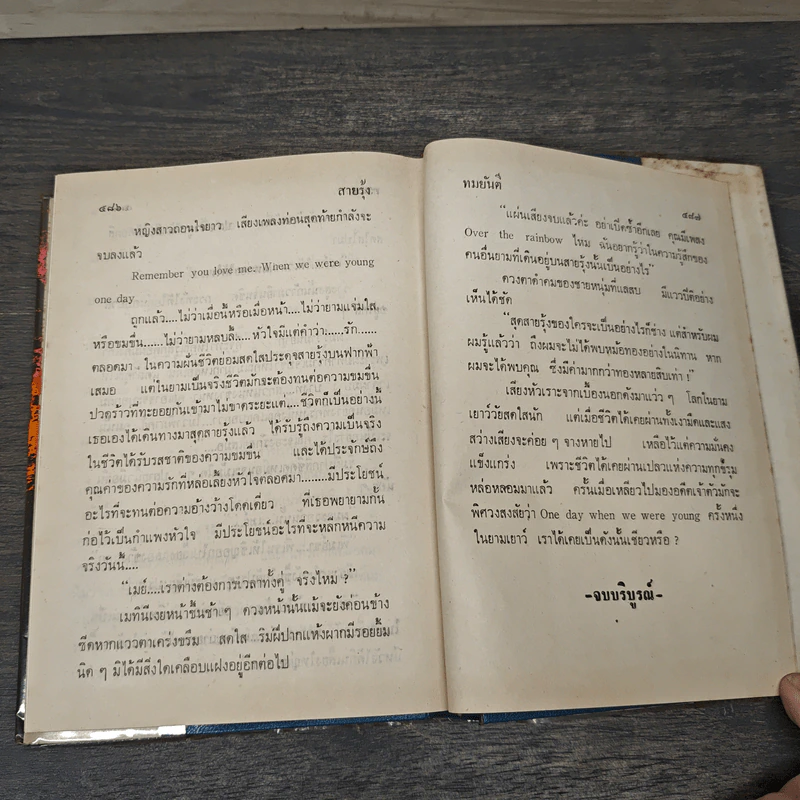 ๔๘๖
สายรุ้ง
หญิงสาวถอนใจยาว เสียงเพลงท่อนสุดท้ายกำลังจะ
จบลงแล้ว
Remember you love me. When we were young
one day
ถูกแล้ว....ไม่ว่าเมื่อนี้หรือเมื่อหน้า....ไม่ว่ายามแจ่มใส
หรือขมขื่น......ไม่ว่ายามหลบลี้.....หัวใจมีแต่คำว่า.....รัก.....
ตลอดมา ในความฝันชีวิตย่อมสดใสประดุจสายรุ้งบนฟากฟ้า
เสมอ แต่ในยามเป็นจริงชีวิตมักจะต้องทนต่อความขมขื่น
ปวดร้าวที่ทะยอยกันเข้ามาไม่ขาดระยะแต่....ชีวิตก็เป็นอย่างนี้
เธอเองได้เดินทางมาสุดสายรุ้งแล้ว ได้รับรู้ถึงความเป็นจริง
ในชีวิตได้รับรสชาติของความขมขื่น และได้ประจักษ์ถึง
คุณค่าของความรักที่หล่อเลี้ยงหัวใจตลอดมา........มีประโยชน์
อะไรที่จะทนต่อความอ้างว้างโดดเดี่ยว ที่เธอพยายามกั้น
ก่อไว้เป็นกำแพงหัวใจ มีประโยชน์อะไรที่จะหลีกหนีความ
จริงวันนี้....
“เมย์....เราต่างต้องการเวลาทั้งคู่ จริงไหม ?”
เมทินีเงยหน้าขึ้นช้า ๆ ดวงหน้านั้นแม้จะยังค่อนข้าง
ซีดหากแววตาเคร่งขรึม สดใส ริมฝีปากแห้งผากมีรอยยิ้ม
นิด ๆ มิได้มีสิ่งใดเคลือบแฝงอยู่อีกต่อไป
ทมยันตี
๔๘๗
“แผ่นเสียงจบแล้วค่ะ อย่าเปิดซ้ำอีกเลย คุณมีเพลง
Over the rainbow ไหม ฉันอยากรู้ว่าในความรู้สึกของ
คนอื่นยามที่เดินอยู่บนสายรุ้งนั้นเป็นอย่างไร”
ดวงตาดำคมของชายหนุ่มที่แลสบ มีแววปิติอย่าง
เห็นได้ชัด
“สุดสายรุ้งของใครจะเป็นอย่างไรก็ช่าง แต่สำหรับผม
ผมรู้แล้วว่า ถึงผมจะไม่ได้พบหม้อทองอย่างในนิทาน หาก
ผมจะได้พบคุณ ซึ่งมีค่ามากกว่าทองหลายสิบเท่า !”
เสียงหัวเราะจากเบื้องนอกดังมาแว่ว ๆ โลกในยาม
เยาว์วัยสดใสนัก แต่เมื่อชีวิตได้เคยผ่านทั้งเงามืดและแสง
สว่างเสียงจะค่อย ๆ จางหายไป เหลือไว้แต่ความมั่นคง
แข็งแกร่ง เพราะชีวิตได้เคยผ่านเปลวแห่งความทุกข์รุม
หล่อหลอมมาแล้ว ครั้นเมื่อเหลียวไปมองอดีตเจ้าตัวมักจะ
พิศวงสงสัยว่า One day when we were young ครั้งหนึ่ง
ในยามเยาว์ เราได้เคยเป็นดังนั้นเชียวหรือ ?
-จบบริบูรณ์-